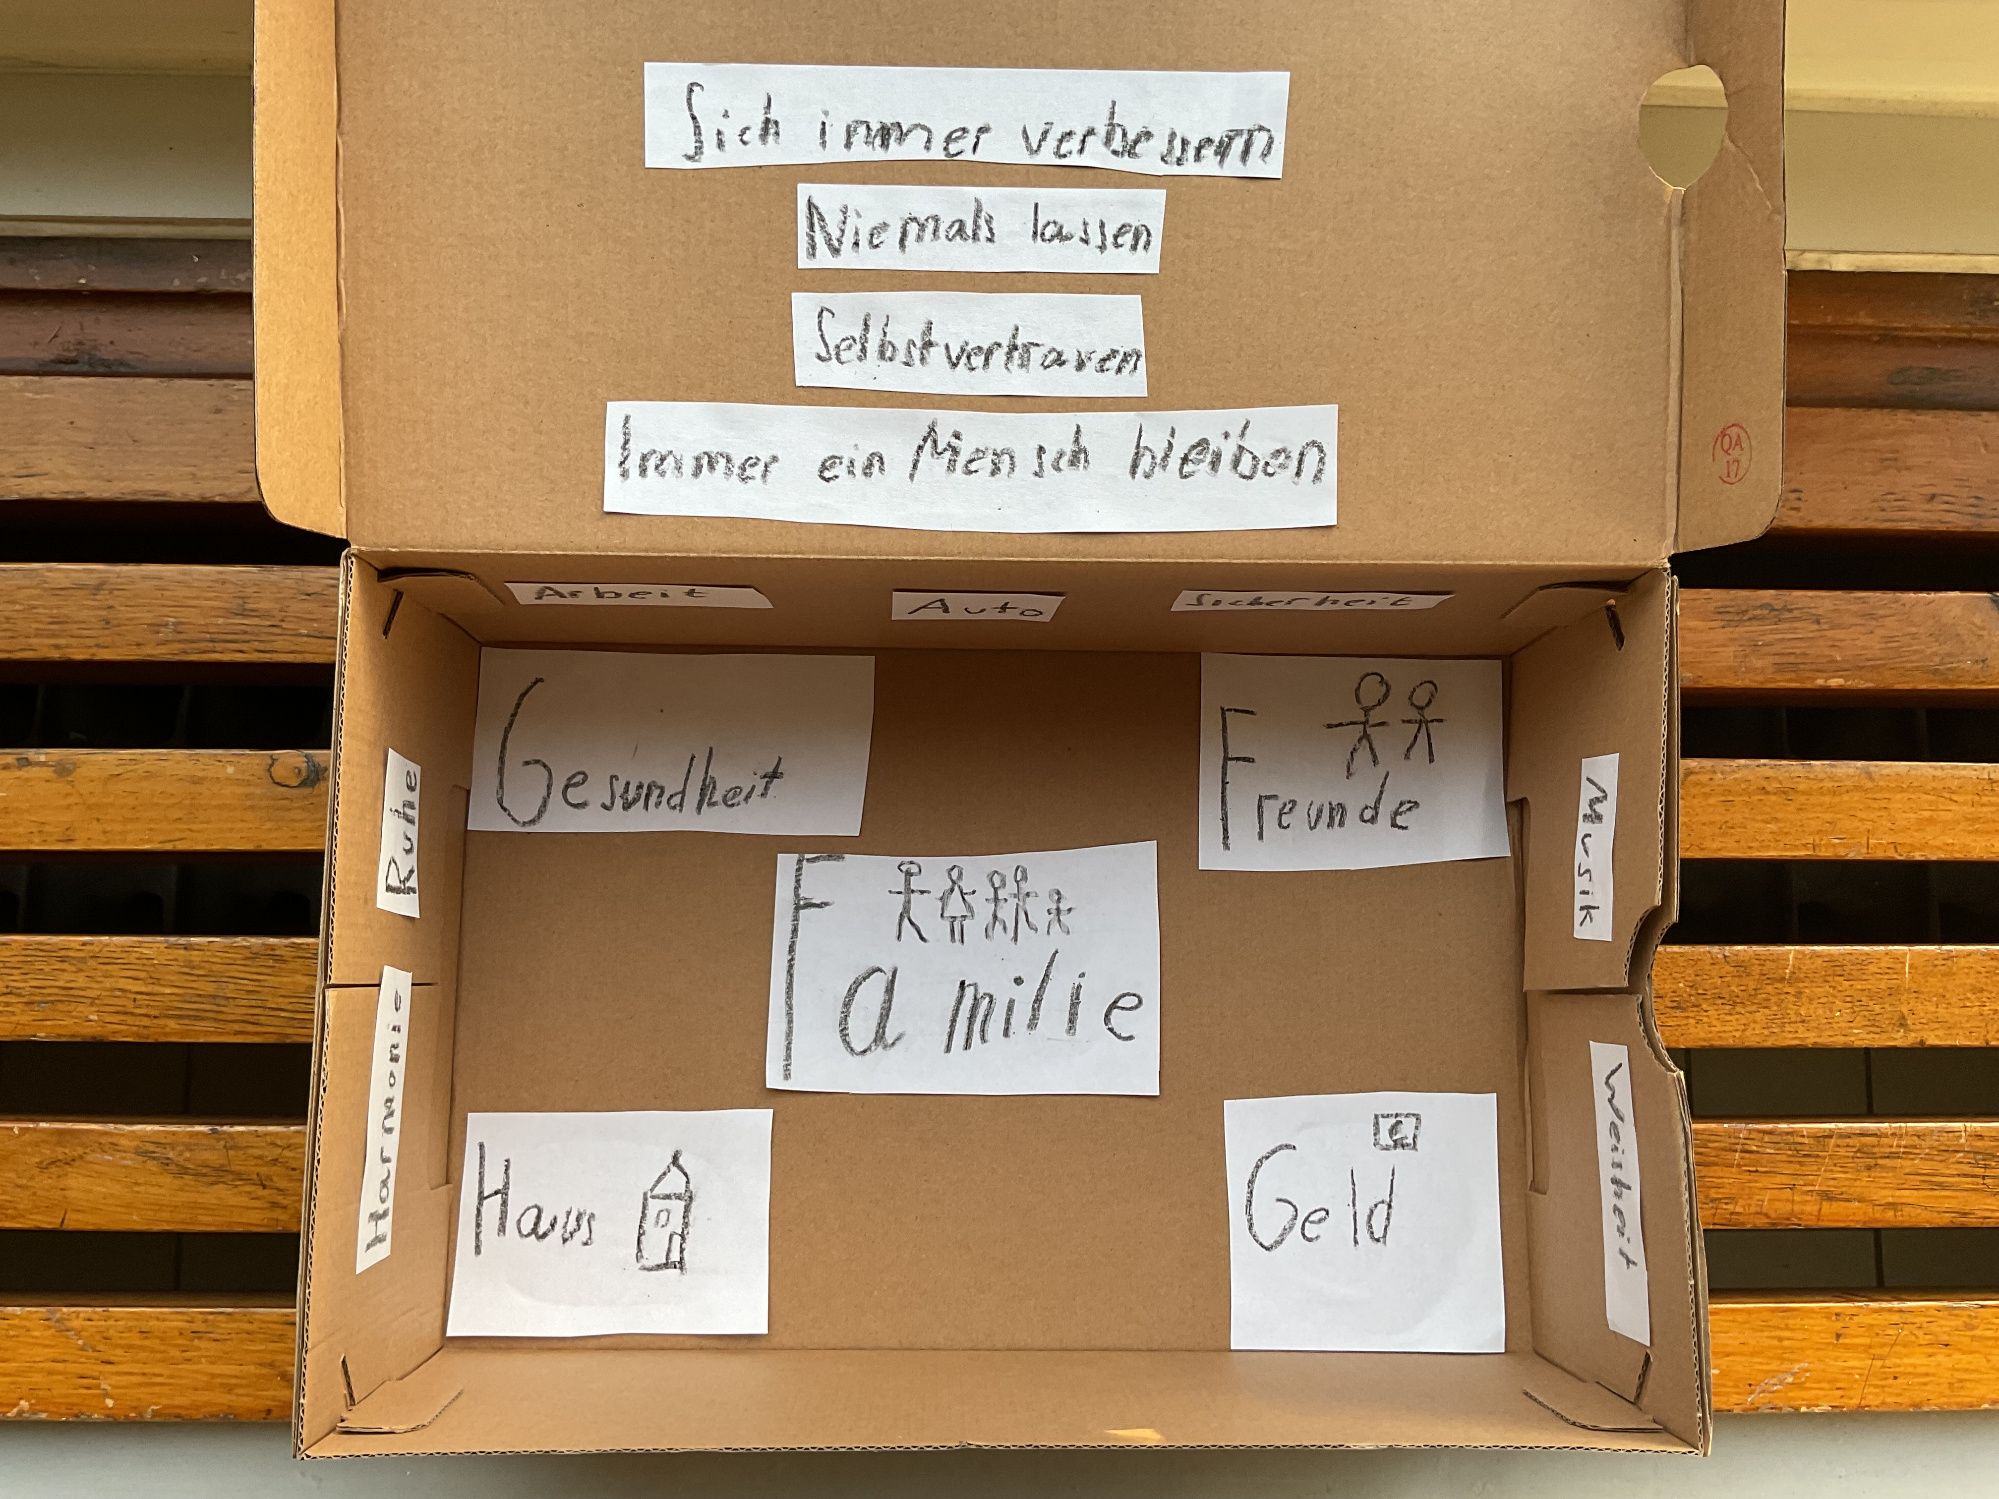 Sich immer verbessern
Niemals lassen
Selbstvertrauen
Immer ein Mensch bleiben
QA
17
Arbeit
Auto
Sicherheit
Gesundheit
Freunde
Ruhe
Musik
Familie
Harmonie
Weisheit
Haus
Geld